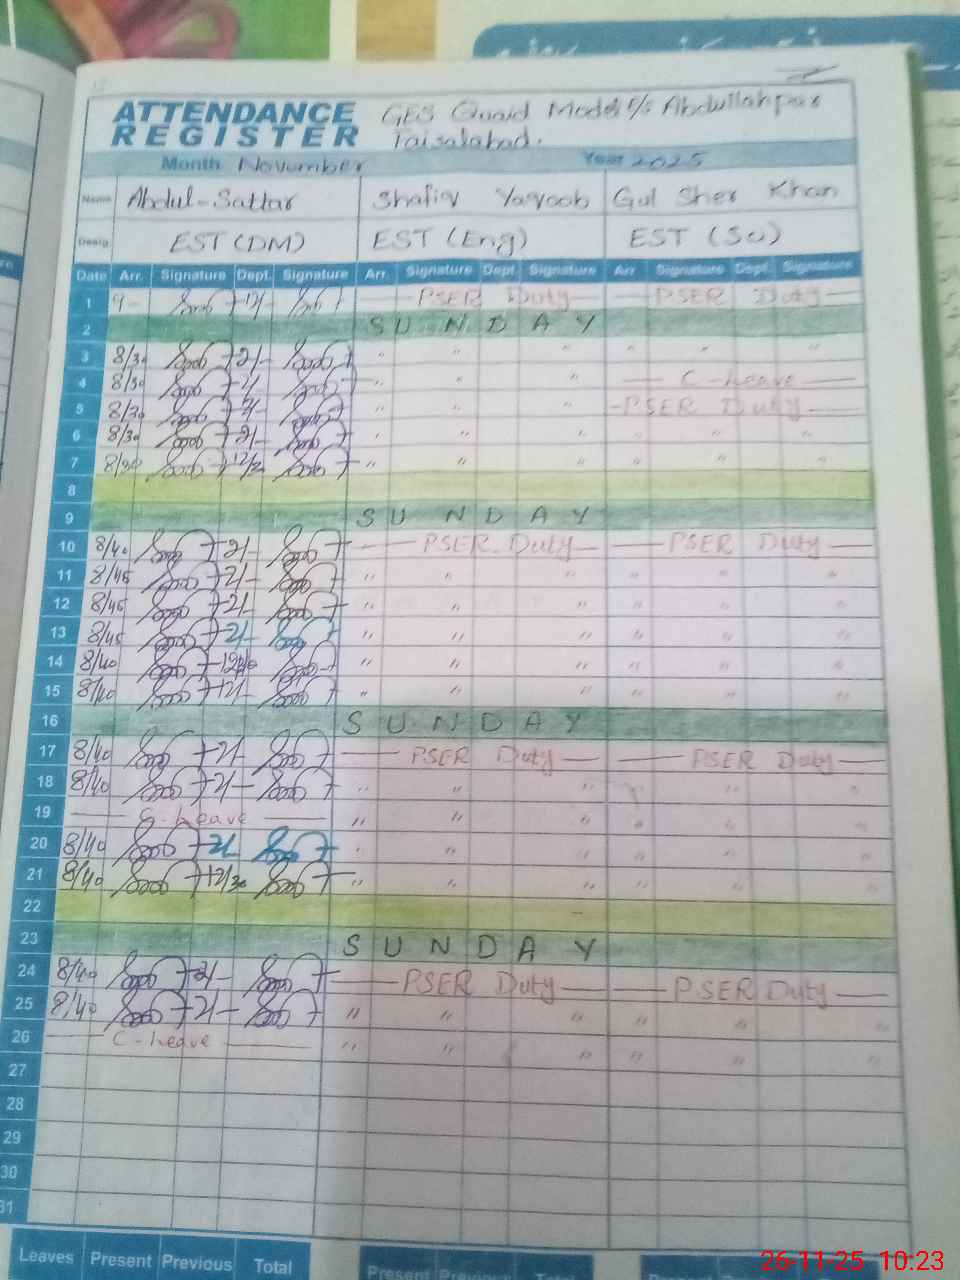 ATTENDANCE REGISTER
GES Quaid Model F/S Abdullahpur
Faisalabad.
Month November Year 2025
Name Abdul-Sattar Shafiq Yaqoob Gul Sher Khan
Desig. EST (DM) EST (Eng)
Date Arr. Signature Dept. Signature Arr. Signature Dept. Signature Arr Signature Dept. Signature
1 9- PSER Duty PSER Duty
2 SUNDAY
3 8/30 2/- " " " " " "
4 8/30 2/- " " " C-Leave
5 8/30 2/- " " " PSER Duty
6 8/30 2/- " " " " " "
7 8/30 " " " " " "
8
9 SUNDAY
10 8/40 2/- PSER Duty PSER Duty
11 8/45 2/- " " " " " "
12 8/45 2/- " " " " " "
13 8/45 2/- " " " " " "
14 8/40 " " " " " "
15 8/40 2/- " " " " " "
16 SUNDAY
17 8/40 2/- PSER Duty PSER Duty
18 8/40 2/- " " " " "
19 C-Leave " " " " " "
20 8/40 2/- " " " " " "
21 8/40 " " " " " "
22
23 SUNDAY
24 8/40 2/- PSER Duty PSER Duty
25 8/40 2/- " " " " " "
26 C-Leave " " " " " "
27
28
29
30
31
Leaves Present Previous Total Present Previous Total Present
26-11-25 10:23